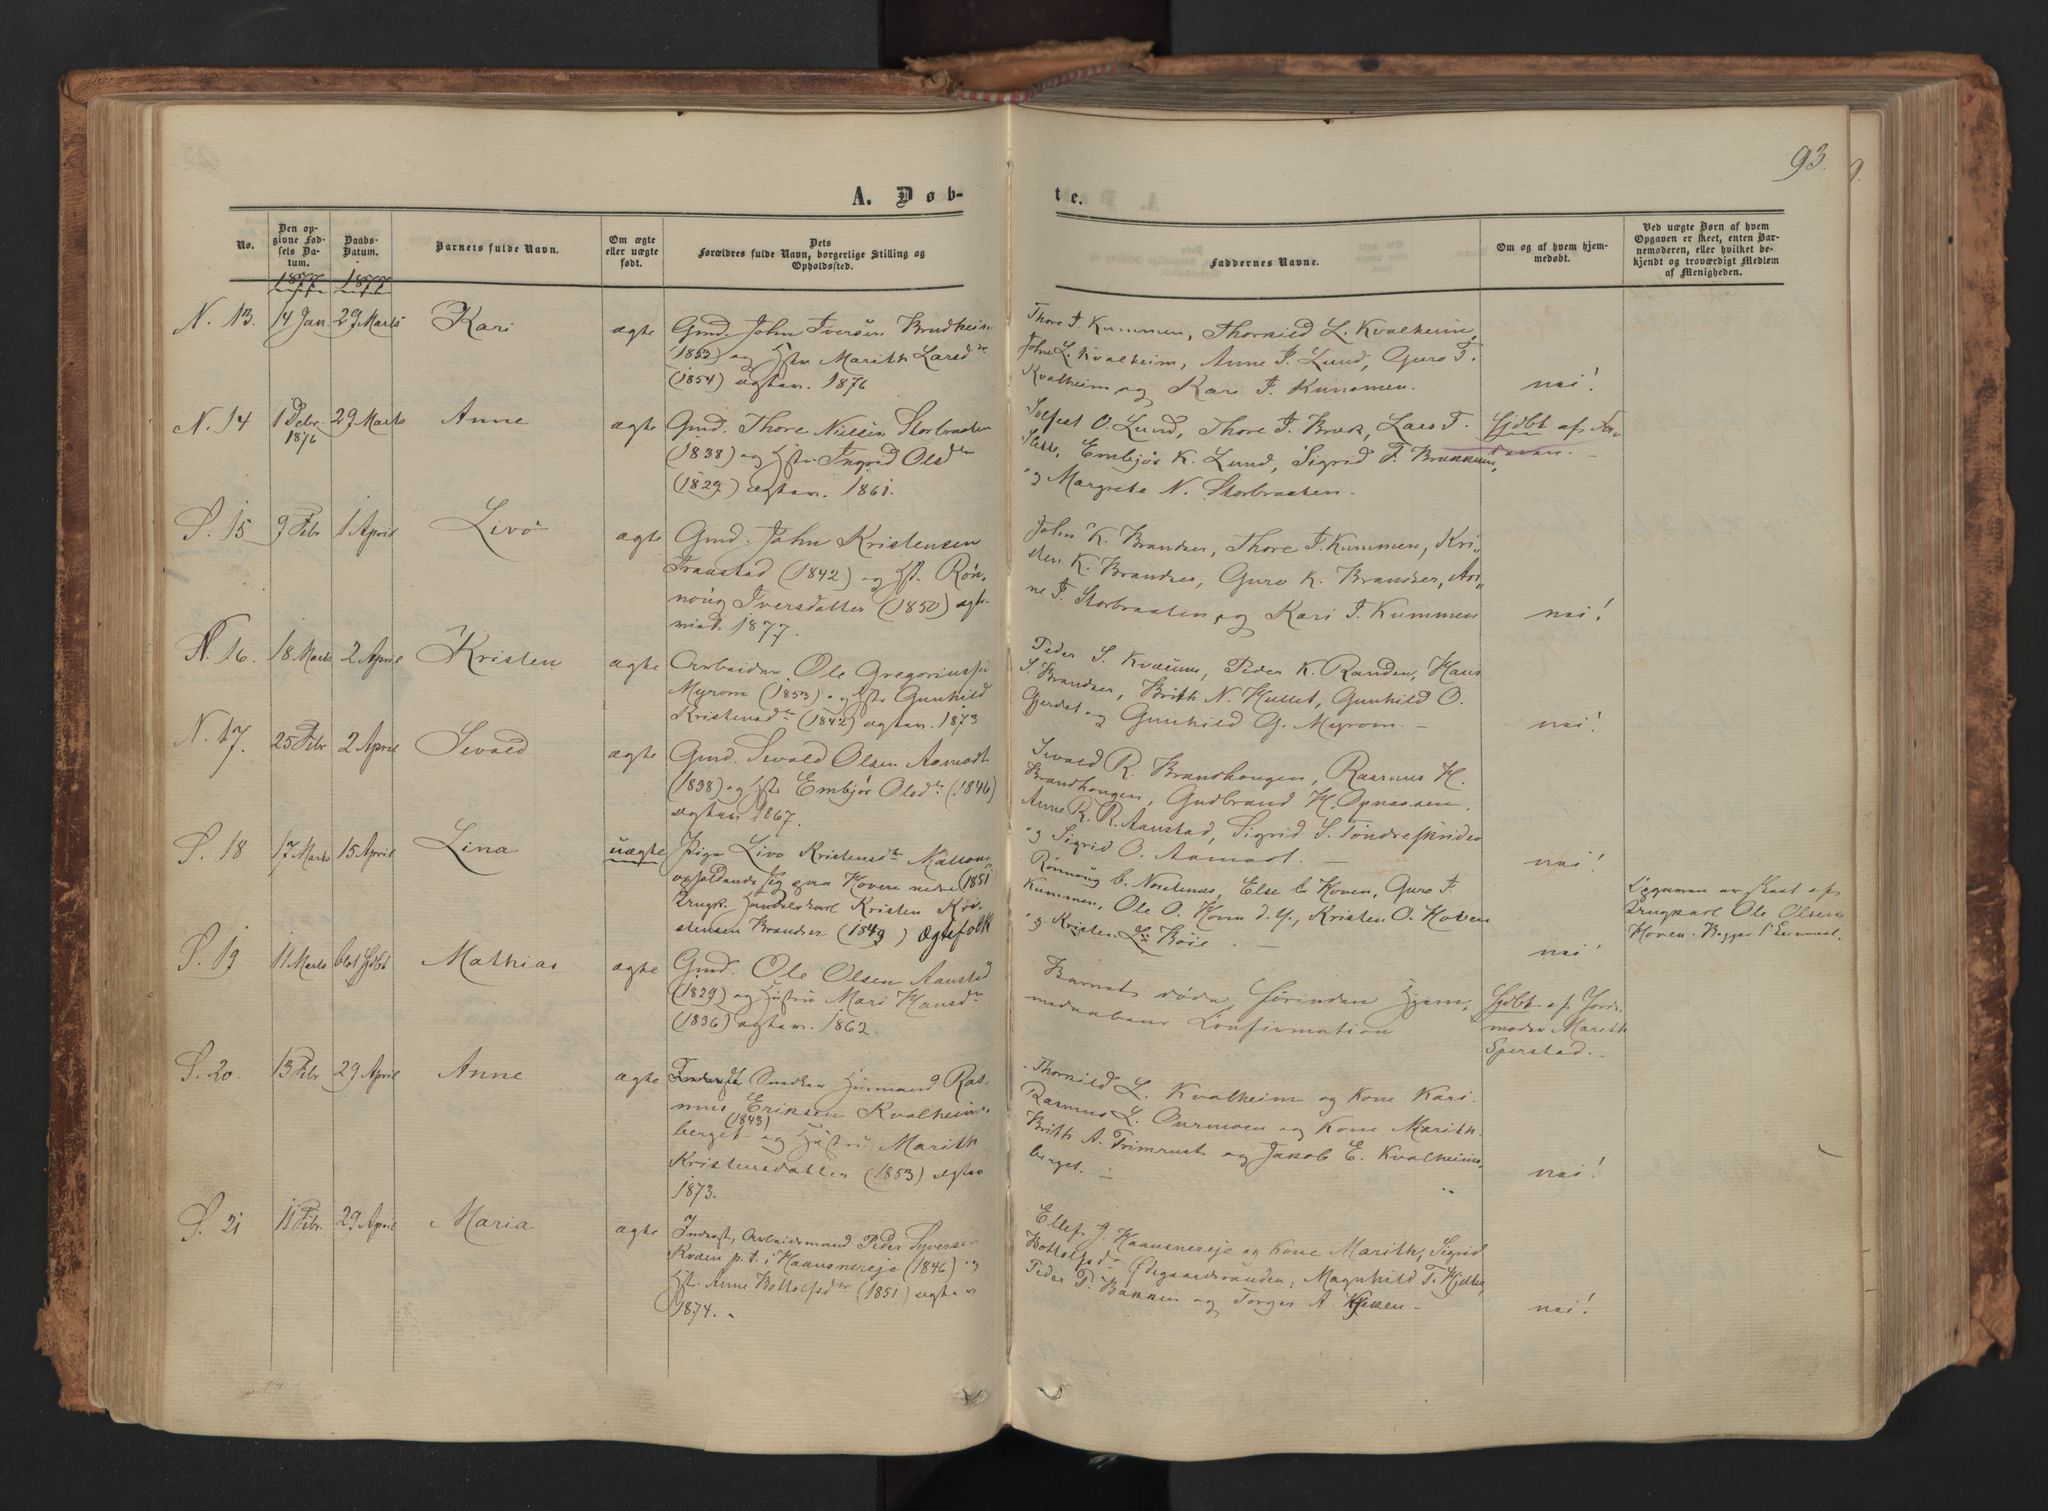 93.
A. Døb-
te.
No.
Den op-
givne Fød-
sels Da-
tum.
Daabs-
Datum.
Barnets fulde Navn.
Om ægte
eller uægte
født.
Dets
Forældres fulde Navn, borgerlige Stilling og
Opholdssted.
Faddernes Navne.
Om og af hvem hjem-
medøbt.
Ved uægte Børn af hvem
Opgaven er skeet, enten Bar-
nemoderen, eller hvilket be-
kjendt og troværdigt Medlem
af Menigheden.
1877 1877
N. 13. 14 Jan. 29 Marts Kari ægte
Gmd. John Iversen Brudheim
(1852) og Hstr Marith Larsdtr
(1854) ægtev. 1876
Thore I. Kummen, Thorkild L. Kvalheim,
John L. Kvalheim, Anne I. Lund, Guro T.
Kvalheim og Kari I. Kummen.
nei!
N. 14 1 Debr. 1876 29 Marts Anne ægte
Gmd. Thore Nielsen Storbraaten
(1838) og Hstr Ingrid Olsdtr
(1829) ægtev. 1861.
O. Lund, Thore I. Bræk, Lars T.
Embjør K. Lund, Sigrid T. Brækken,
og Margrete N. Storbraaten.
Hjdbt af
S. 15 9 Febr 1 April Livø ægte
Gmd. John Kristensen
Fraustad (1842) og Hst. Røn-
noug Iversdatter (1850) ægte-
viet 1877.
John K. Brandser, Thore I. Kummen, Kri-
sten K. Brandser, Guro K. Brandser, An-
ne I. Storbraaten, og Kari I. Kummen
nei!
N. 16. 18 Marts 2 April Kristen ægte
Arbeider Ole Gregoriussen
Myrom (1853) og Hstr Gunhild
Kristensdtr (1842) ægtev. 1873
Peder S. Kvæum, Peder K. Randen, Hans
S. Brandser, Brith N. Hullet, Gunhild O.
Gjerdet og Gunhild G. Myrom. -
nei!
N. 17. 25 Febr 2 April Sevald ægte
Gmd. Sevald Olsen Aamodt
(1838) og Hstr Embjør Olsdtr (1846)
ægtev. 1867.
Sevald R. Brandhougen, Rasmus H.
Brandhougen, Gudbrand H. Opnassen,
Anne R. R. Aanstad, Sigrid S. Tøndreskriden
og Sigrid O. Aamodt. -
nei!
S. 18 17 Marts 15 April Lina uægte
Pige Livø Kristensdtr
opholdende sig paa Hoven nedre (1851)
Ungk. Handelskarl Kristen Kri-
stensen Brandser (1849) Ægtefolk
Rønnoug C. Nordenus, Else C. Hoven, Guro I.
Kummen, Ole O. Hoven d. y., Kristen O. Hoven
og Kristen L. Bøie -
nei!
Opgaven er skeet af
Ungkarl Ole Olsen
Hoven.
S. 19 11 Marts blot Hjdbt Mathias ægte
Gmd. Ole Olsen Aanstad
(1829) og Hustru Mari Hansdtr
(1836) ægtev. 1862.
Barnet døde førinden Hjem-
medaabens Confirmation
Hjdbt af Jorde-
moder Marith
Sperstad.
S. 20. 13 Febr 29 April Anne ægte
Inderst Snedker Huusmand Ras-
mus Eriksen Kvalheims-
(1843)
berget og Hustru Marith
Kristensdatter (1853) ægtev
1873.
Thorkild L. Kvalheim og Kone Kari.
Rasmus L. Ourmoen og Kone Marith.
Brith A. Frimrust og Jakob E. Kvalheims-
berget. -
nei!
S. 21 11 Febr. 29 April Maria ægte
Inderst, Arbeidsmand Peder Syversen
Kvæen p. t. i Haausnereje (1846) og
Hst. Anne Bottolfsdtr (1851) ægtev
1874. -
Ellef J. Haausnereje og Kone Marith, Sigrid
Bottolfsdtr Øigaardsranden, Magnhild T. Kjellen,
Peder T. Bakken og Torger A. Kjellen -
nei!